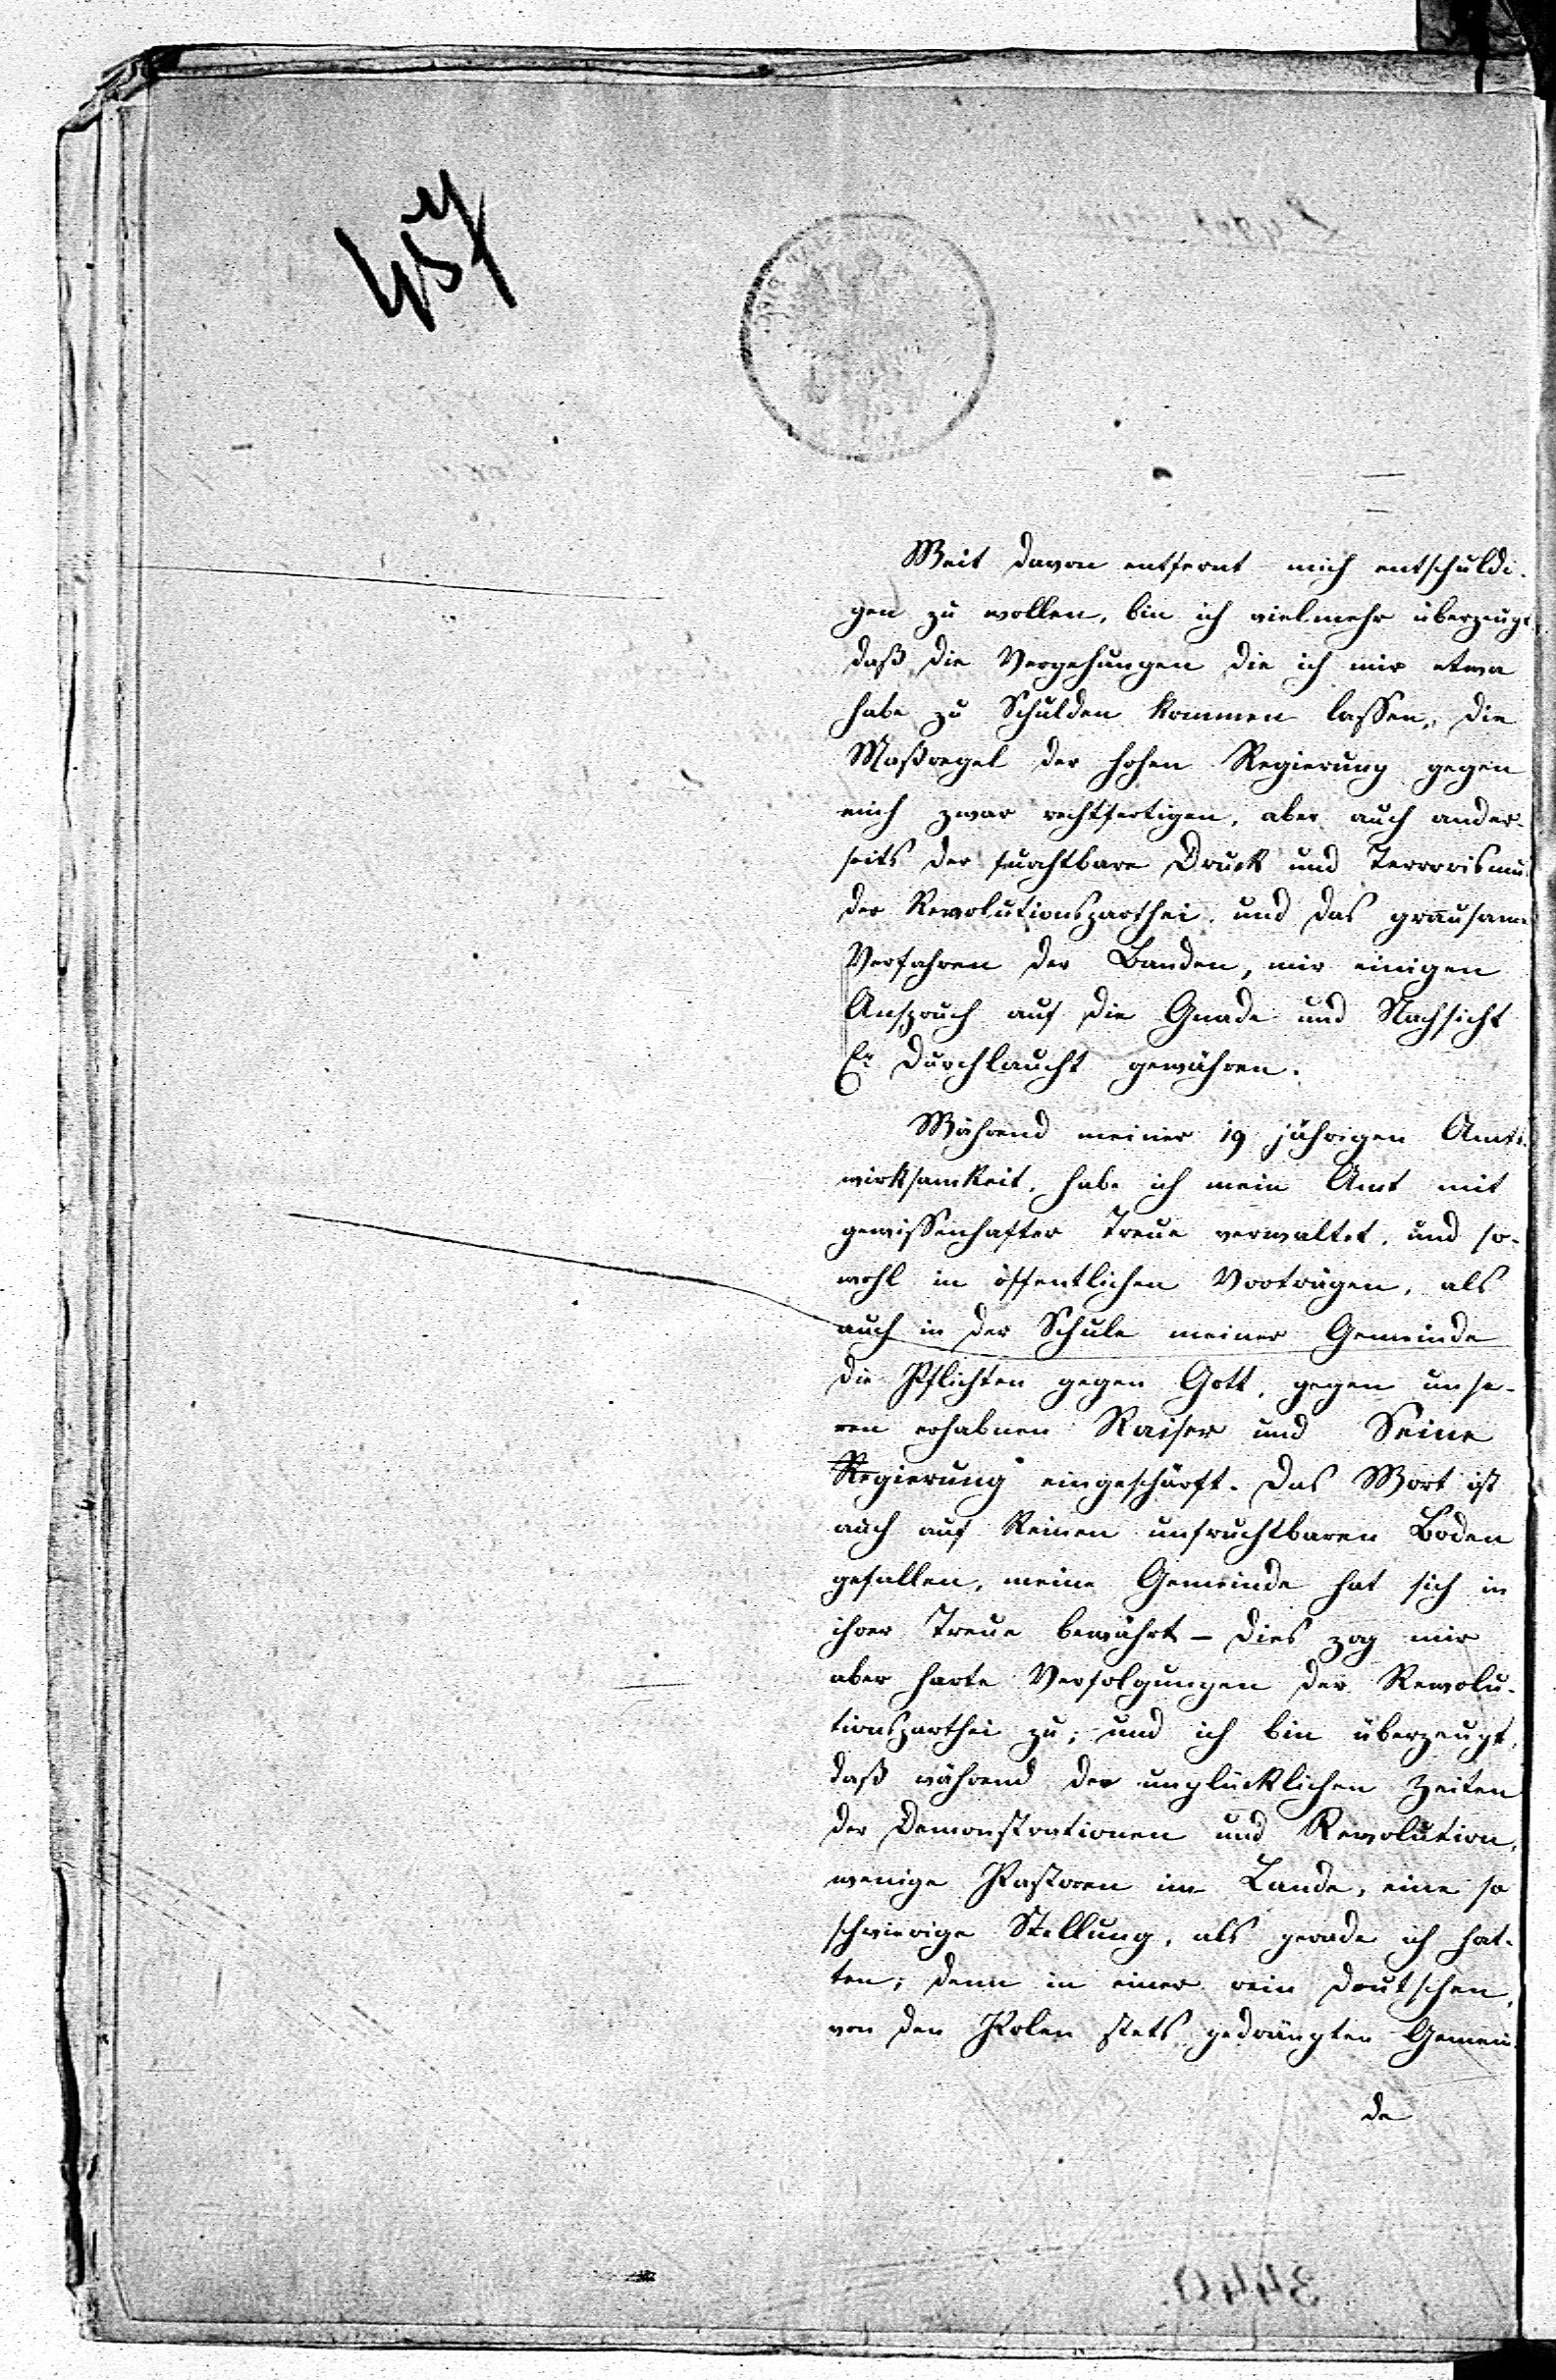 Weit davon entfernt mich entschuldi-
gen zu wollen, bin ich vielmehr überzeugt,
daß die Vergehungen die ich mir etwa
habe zu Schulden kommen lassen, die
Maßregel der hohen Regierung gegen
mich zwar rechtfertigen, aber auch ander-
seits der furchtbare Druck und Terrorismus
der Revolutionsparthei, und das grausame
Verfahren der Banden, mir einigen
Anspruch auf die Gnade und Nachsicht
Er Durchlaucht gewähren.
Während meiner 19 jährigen Amts-
wirksamkeit, habe ich mein Amt mit
gewissenhafter Treue verwaltet, und so-
wohl in öffentlichen Vorträgen, als
auch in der Schule meiner Gemeinde
die Pflichten gegen Gott, gegen unse-
ren erhabnen Kaiser und Seine
Regierung eingeschärft. Das Wort ist
auch auf keinen unfruchtbaren Boden
gefallen, meine Gemeinde hat sich in
ihrer Treue bewährt – dies zog mir
aber harte Verfolgungen der Revolu-
tionsparthei zu; und ich bin überzeugt,
daß während der unglücklichen Zeiten
der Demonstrationen und Revolution,
wenige Pastoren im Lande, eine so
schwierige Stellung, als gerade ich hat-
ten; denn in einer rein deutschen,
von den Polen stets gedrängten Gemein-
de